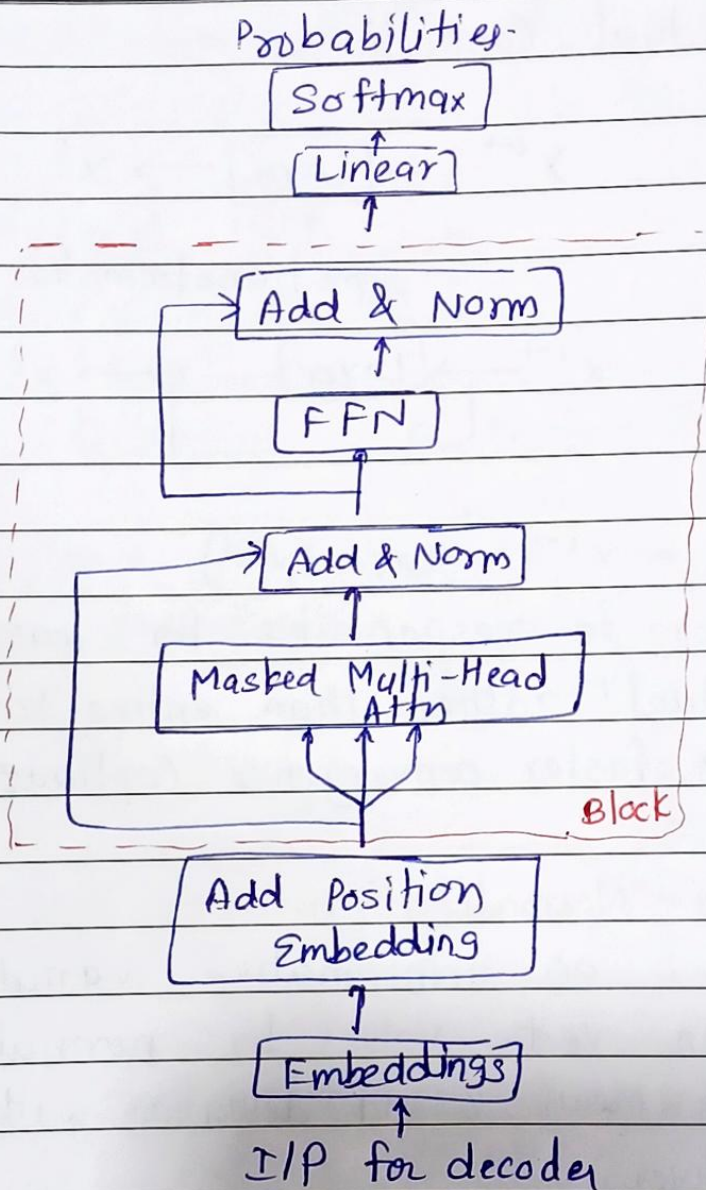 Probabilities.
Softmax
Linear
Add & Norm
FFN
Add & Norm
Masked Multi-Head
Attn
Block
Add Position
Embedding
Embeddings
I/P for decoder